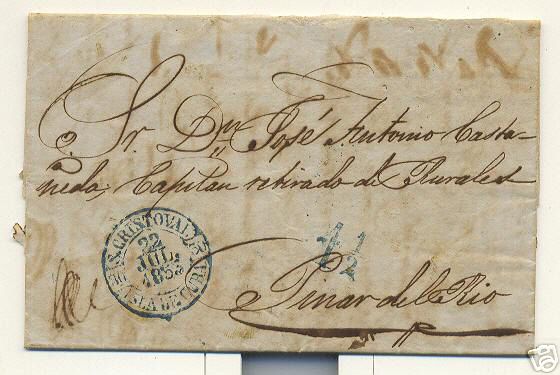 Sr. Dn. José Antonio Casta-
ñeda, Capitan retirado de Rurales
S. CRISTOVAL
22
JUL.
ISLA DE CUBA
1 1/2
Pinar del Rio